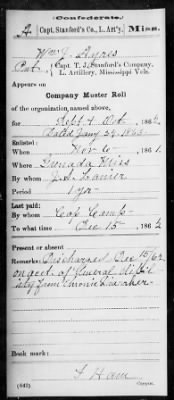 (Confederate.)
A. Capt. Stanford's Co., L. Art'y. Miss.
Wm J. Ayres
Pvt, Capt. T. J. Stanford's Company,
L. Artillery, Mississippi Vols.
Appears on
Company Muster Roll
of the organization named above,
for Sept & Oct, 1862
Dated Jany 29 1863
Enlisted:
When Nov 6, 1861
Where Grenada Miss
By whom J. S. Lanier
Period 1 yr
Last paid:
By whom Cap Camp
To what time Dec 15, 1862
Present or absent
Remarks: Discharged Dec 15/62
on acct of General debil-
ity from Chronic Diarrhea
Book mark:
(642) Copyist.